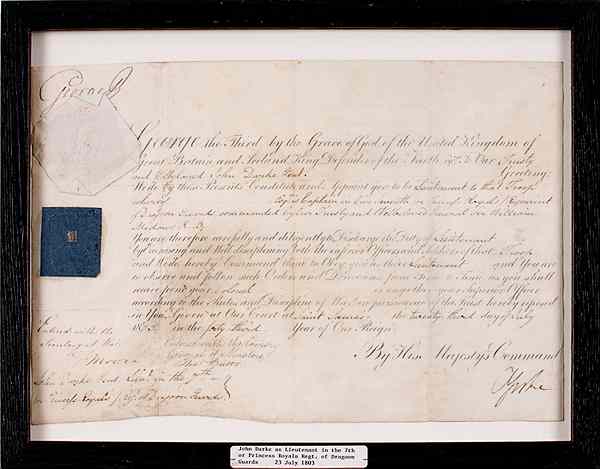 George R
George the Third by the Grace of God of the United Kingdom of
Great Britain and Ireland King, Defender of the Faith, &c. To Our Trusty
and Welbeloved John Darke Gent. Greeting:
We do by these Presents Constitute and Appoint you to be Lieutenant to that Troop
whereof Esqr. is Captain in Our Seventh or Princess Royal's Regiment
of Dragoon Guards commanded by Our Trusty and Welbeloved General Sir William
Medows K.B.
You are therefore carefully and diligently to Discharge the Duty of Lieutenant by
Exercising and well Disciplining both the inferior Officers and Soldiers of that Troop
and We do hereby Command them to Obey you as their Lieutenant and You are
to observe and follow such Orders and Directions from Time to Time as you shall
receive from your Colonel or any other your Superior Officer
according to the Rules and Discipline of War in pursuance of the Trust hereby reposed
in You. Given at Our Court at Saint James's the twenty third day of July
1803 in the forty third Year of Our Reign.
Entered with the
Secretary at War
Entered with the Comry.
General of Musters
By His Majesty's Command
John Darke Gent. Lieut. in the 7th
or Princess Royal's Regt. of Dragoon Guards
John Darke as Lieutenant in the 7th
or Princess Royals Regt. of Dragoon
Guards 23 July 1803